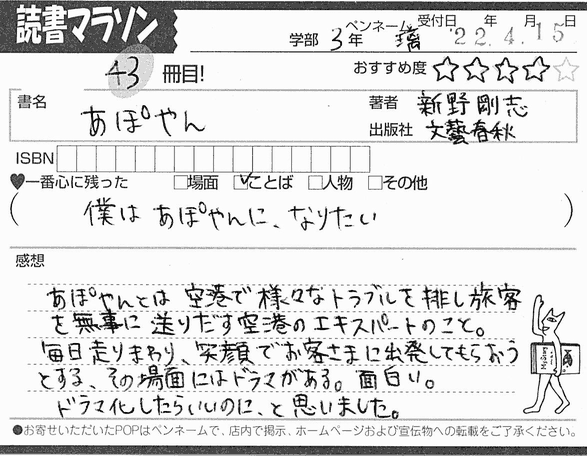 読書マラソン
学部 3年 ペンネーム 璃 受付日 年 月 日 '22.4.15
43 冊目! おすすめ度 ☆☆☆☆☆
書名 あぽやん 著者 新野剛志
出版社 文藝春秋
ISBN
♥一番心に残った □場面 ☑ことば □人物 □その他
(僕は あぽやんに、なりたい)
感想
あぽやんとは 空港で 様々な トラブルを 排し 旅客
を 無事に 送りだす 空港の エキスパートのこと。
毎日 走りまわり、笑顔で お客さまに 出発してもらおう
とする、その 場面には ドラマがある。面白い。
ドラマ化 したらいいのに、と 思いました。
●お寄せいただいたPOPはペンネームで、店内で掲示、ホームページおよび宣伝物への転載をご了承ください。